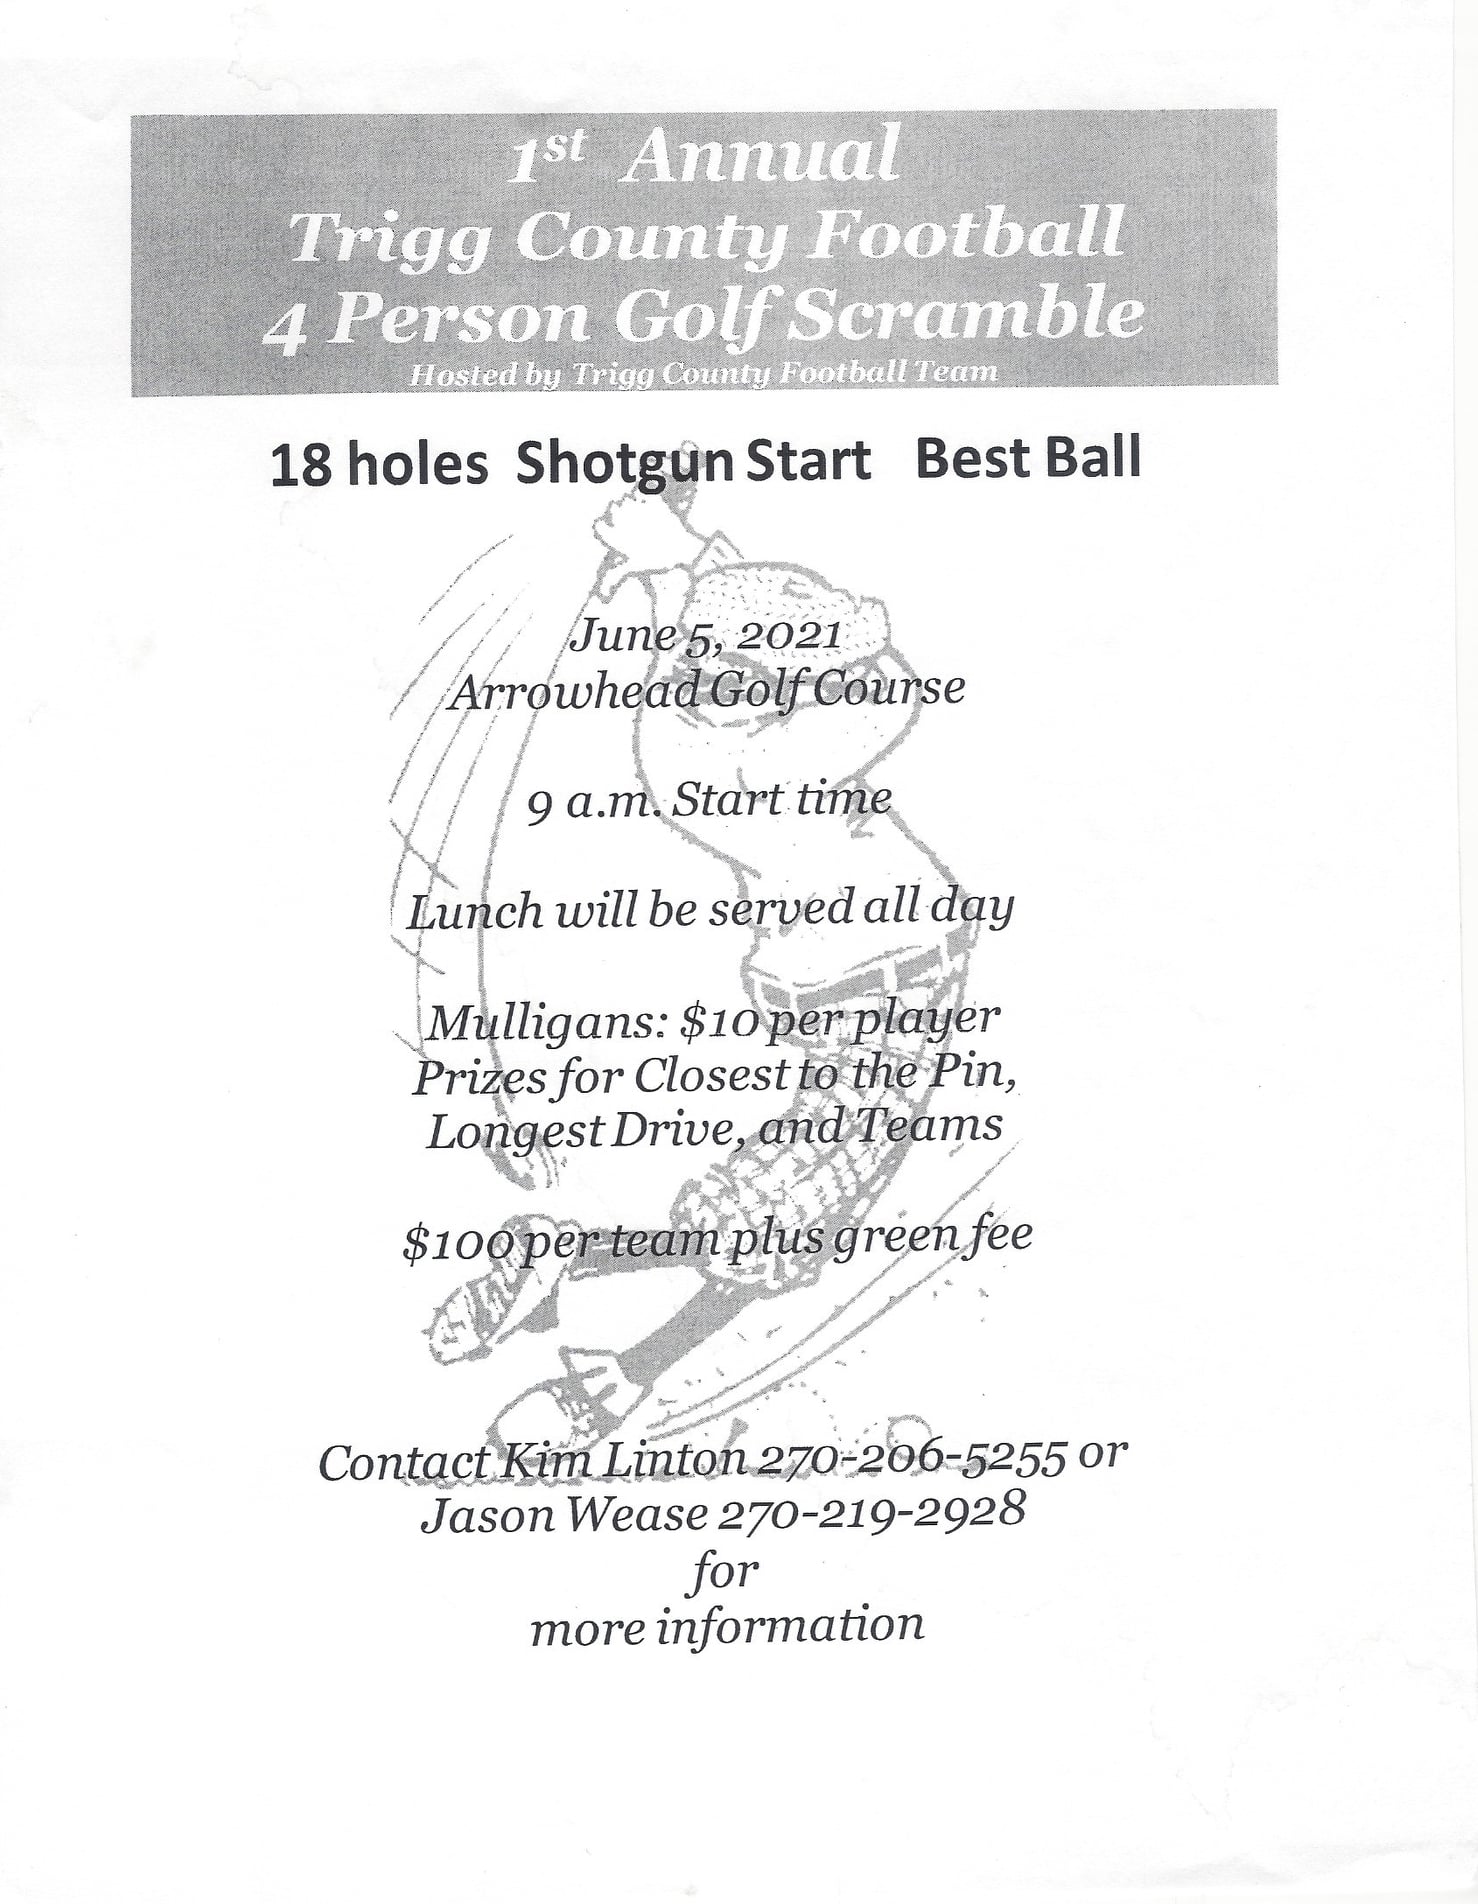 1st Annual
Trigg County Football
4 Person Golf Scramble
Hosted by Trigg County Football Team
18 holes Shotgun Start Best Ball
June 5, 2021
Arrowhead Golf Course
9 a.m. Start time
Lunch will be served all day
Mulligans: $10 per player
Prizes for Closest to the Pin,
Longest Drive, and Teams
$100 per team plus green fee
Contact Kim Linton 270-206-5255 or
Jason Wease 270-219-2928
for
more information